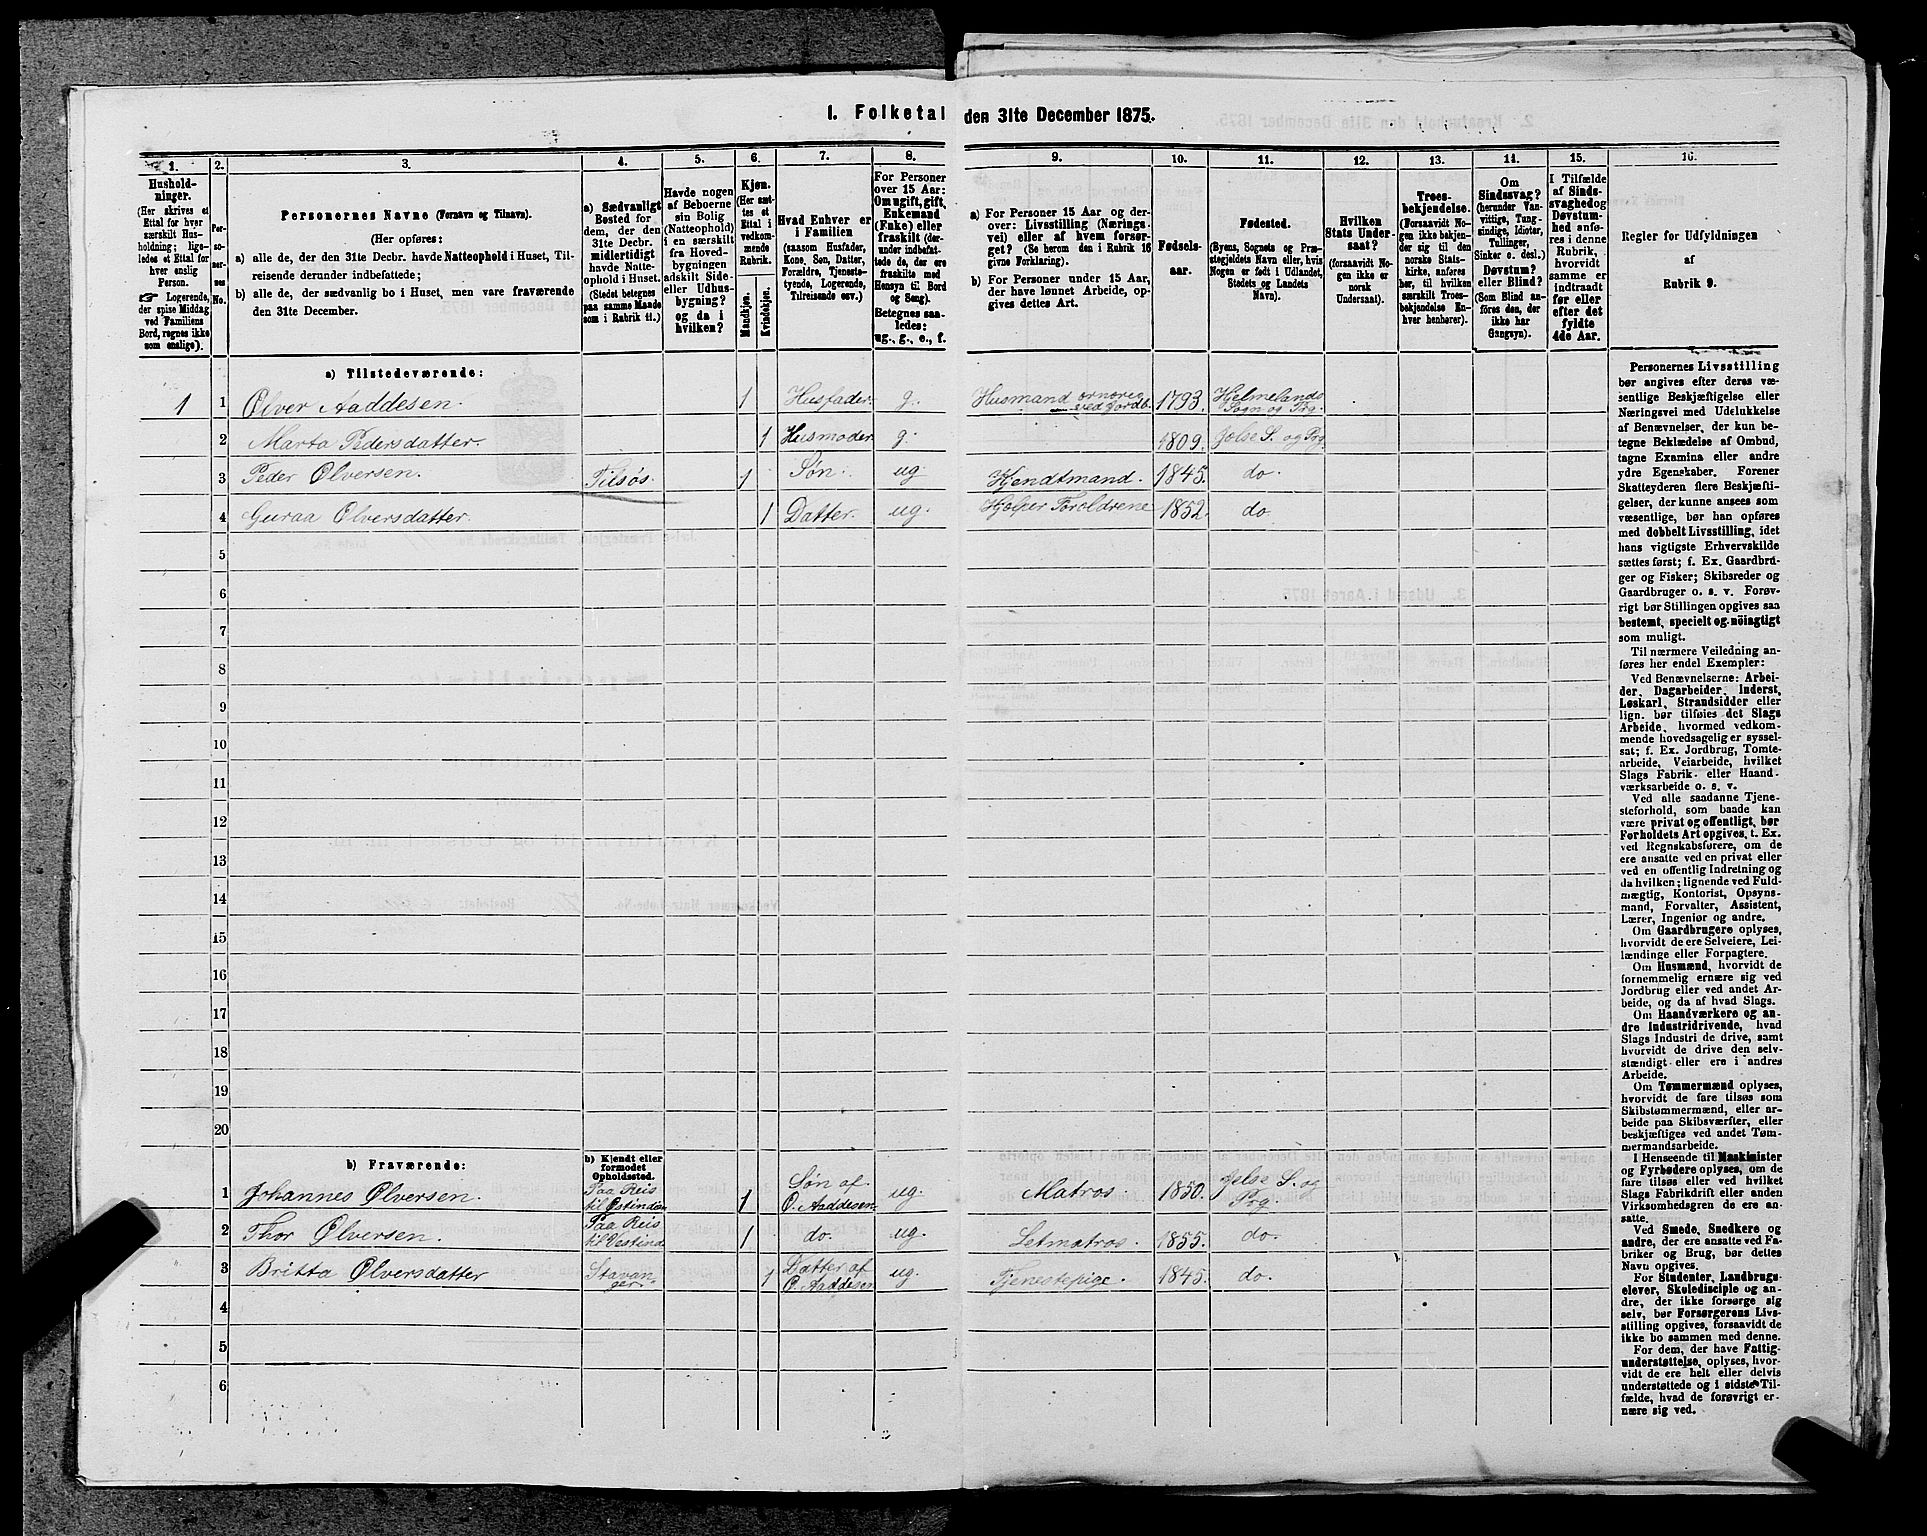 1. Folketal den 31te December 1875.
1. 2. 3. 4. 5. 6. 7. 8. 9. 10. 11. 12. 13. 14. 15. 16.
Hushold-
ninger.
(Her skrives et
Ettal for hver
særskilt Hus-
holdning; lige-
ledes et Ettal for
hver enslig
Person.
☞ Logerende,
der spise Middag
ved Familiens
Bord, regnes ikke
som enslige).
Per-
so-
ner-
nes
No.
Personernes Navne (Fornavn og Tilnavn).
(Her opføres:
a) alle de, der den 31te Decbr. havde Natteophold i Huset, Til-
reisende derunder indbefattede;
b) alle de, der sædvanlig bo i Huset, men vare fraværende
den 31te December.
a) Sædvanligt
Bosted for
dem, der den
31te Decbr.
midlertidigt
havde Natte-
ophold i Huset.
(Stedet betegnes
paa samme Maade
som i Rubrik 11.)
Havde nogen
af Beboerne
sin Bolig
(Natteophold)
i en særskilt
fra Hoved-
bygningen
adskilt Side-
eller Udhus-
bygning?
og da i
hvilken?
Kjøn.
(Her sæt-
tes et
Ettal i
vedkom-
mende
Rubrik.
Mandkjøn.
Kvindekjøn.
Hvad Enhver er
i Familien
(saasom Husfader,
Kone, Søn, Datter,
Forældre, Tjeneste-
tyende, Logerende,
Tilreisende osv.)
For Personer
over 15 Aar:
Om ugift, gift,
Enkemand
(Enke) eller
fraskilt (der-
under indbefat-
tede de, der ere
fraskilte med
Hensyn til Bord
og Seng).
Betegnes saa-
ledes:
ug., g., e., f.
a) For Personer 15 Aar og der-
over: Livsstilling (Nærings-
vei) eller af hvem forsør-
get? (Se herom den i Rubrik 16
givne Forklaring).
b) For Personer under 15 Aar,
der have lønnet Arbeide, op-
gives dettes Art.
Fødsels-
aar.
Fødested.
(Byens, Sognets og Præ-
stegjeldets Navn eller, hvis
Nogen er født i Udlandet,
Stedets og Landets
Navn).
Hvilken
Stats Under-
saat?
(forsaavidt No-
gen ikke er
norsk
Undersaat).
Troes-
bekjendelse.
(Forsaavidt No-
gen ikke bekjen-
der sig til den
norske Stats-
kirke, anføres
her, til hvilken
særskilt Troes-
bekjendelse En-
hver henhører).
Om
Sindssvag?
(herunder Van-
vittige, Tung-
sindige, Idioter,
Tullinger,
Sinker o. desl.)
Døvstum?
eller Blind?
(Som Blind an-
føres den, der
ikke har
Gangsyn).
I Tilfælde
af Sinds-
svaghed og
Døvstum-
hed anfø-
res i denne
Rubrik,
hvorvidt
samme er
indtraadt
før eller
efter det
fyldte
4de Aar.
Regler for Udfyldningen
af
Rubrik 9.
a) Tilstedeværende:
1 1 Ølver Aaddesen. 1 Husfader. g. Husmand ernærer ved Jordb. 1793. Hjelmelands Sogn og Prg.
2 Marta Pedersdatter. 1 Husmoder. g. 1809. Jelse S. og Prg
3 Peder Ølversen. Tilsøs. 1 Søn. ug Hyendtmand. 1845. do.
4 Guraa Ølversdatter. 1 Datter. ug. Hjelper Foroldrene 1852. do.
5
6
7
8
9
10
11
12
13
14
15
16
17
18
19
20
b) Fraværende:
b) Kjendt eller
formodet
Opholdssted.
1 Johannes Ølversen. Paa Reis til Østindien 1 Søn af O. Aaddesen ug. Matros. 1850. Jelse S. og Prg
2 Thor Ølversen. Paa Reis til Vestind. 1 do. ug. Letmatros. 1855. do.
3 Britta Ølversdatter Stavanger. 1 Datter af O. Aaddesen ug. Tjenestepige. 1845. do.
4
5
6
Personernes Livsstilling
bør angives efter deres væ-
sentlige Beskjæftigelse eller
Næringsvei med Udelukkelse
af Benævnelser, der kun be-
tegne Beklædelse af Ombud,
tagne Examina eller andre
ydre Egenskaber. Forener
Skatteyderen flere Beskjæfti-
gelser, der kunne ansees som
væsentlige, bør han opføres
med dobbelt Livsstilling, idet
hans vigtigste Erhvervskilde
sættes først; f. Ex. Gaardbru-
ger og Fisker; Skibsreder og
Gaardbruger o. s. v. Forøv-
rigt bør Stillingen opgives saa
bestemt, specielt og nöiagtigt
som muligt.
Til nærmere Veiledning an-
føres her endel Exempler:
Ved Benævnelserne: Arbei-
der, Dagarbeider, Inderst,
Løskarl, Strandsidder eller
lign. bør tilføies det Slags
Arbeide, hvormed vedkom-
mende hovedsagelig er syssel-
sat; f. Ex. Jordbrug, Tomte-
arbeide, Veiarbeide, hvilket
Slags Fabrik- eller Haand-
værksarbeide o. s. v.
Ved alle saadanne Tjene-
steforhold, som baade kan
være privat og offentligt, bør
Forholdets Art opgives, t. Ex.
ved Regnskabsførere, om de
ere ansatte ved en privat eller
ved en offentlig Indretning og
da hvilken; lignende ved Fuld-
mægtig, Kontorist, Opsyns-
mand, Forvalter, Assistent,
Lærer, Ingeniør og andre.
Om Gaardbrugere oplyses,
hvorvidt de ere Selveiere, Lei-
lændinge eller Forpagtere.
Om Husmænd, hvorvidt de
fornemmelig ernære sig ved
Jordbrug eller ved andet Ar-
beide, og da af hvad Slags.
Om Haandværkere og an-
dre Industridrivende, hvad
Slags Industri de drive, samt
hvorvidt de drive den selv-
stændigt eller ere i andres
Arbeide.
Om Tømmermænd oplyses,
hvorvidt de fare tilsøs som
Skibstømmermænd, eller ar-
beide paa Skibsværfter, eller
beskjæftiges ved andet Tøm-
mermandsarbeide.
I Henseende til Maskinister
og Fyrbødere oplyses, om de
fare tilsøs eller ved hvilket
Slags Fabrikdrift eller anden
Virksomhedsgren de ere an-
satte.
Ved Smede, Snedkere og
andre, der ere ansatte ved Fa-
briker og Brug, bør dettes
Navn opgives.
For Studenter, Landbrugs-
elever, Skoledisciple og an-
dre, der ikke forsørge sig
selv, bør Forsørgerens Livs-
stilling opgives, forsaavidt de
ikke bo sammen med denne.
For dem, der have Fattig-
understøttelse, oplyses, hvor-
vidt de ere helt eller delvis
understøttede og i sidste Til-
fælde, hvad de forøvrigt er-
nære sig ved.